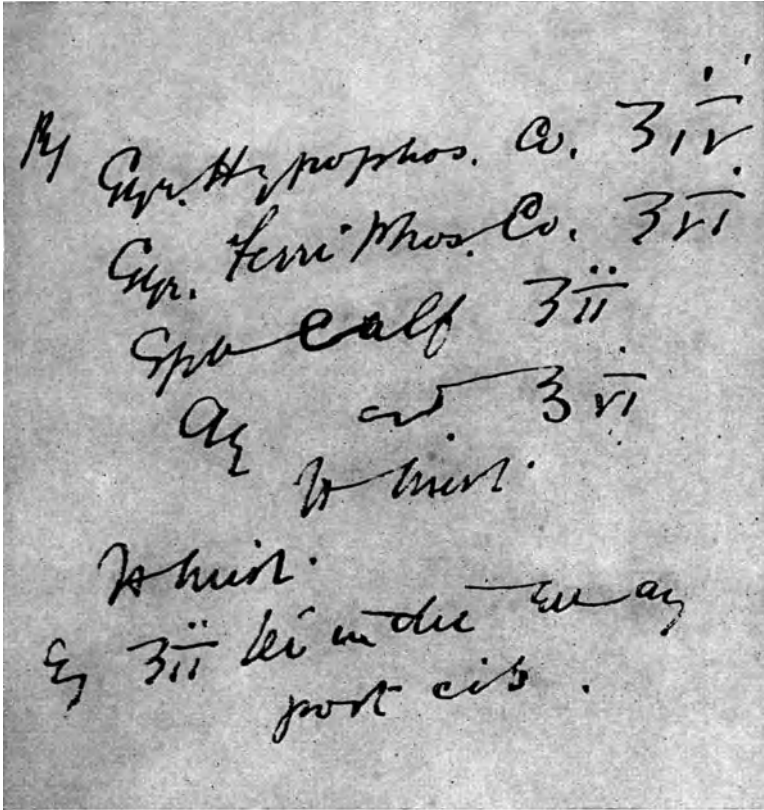 ℞ Syr. Hypophos. Co. ʒiv
Syr. Ferri Phos. Co. ʒvi
ʒii
Aq ad ʒvi
Ft Mist.
Ft Mist.
ʒii in die aq
post cib.